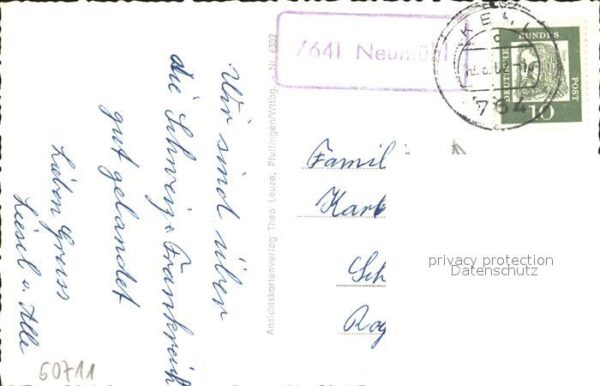 7641 Neumühl
KEHL
764
DEUTSCHE BUNDESPOST
10
Wir sind über
die Schweiz + Frankreich
gut gelandet
Lieben Gruss
Liesel u Alle
Ansichtskartenverlag Theo Leuze, Pfullingen/Wttbg. Nr. 6302
Famil
Karl
Sch
Rog
privacy protection
Datenschutz
60711